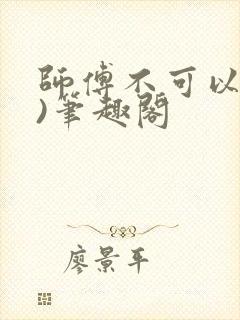 師傅不可以
)筆趣閣
廖景平